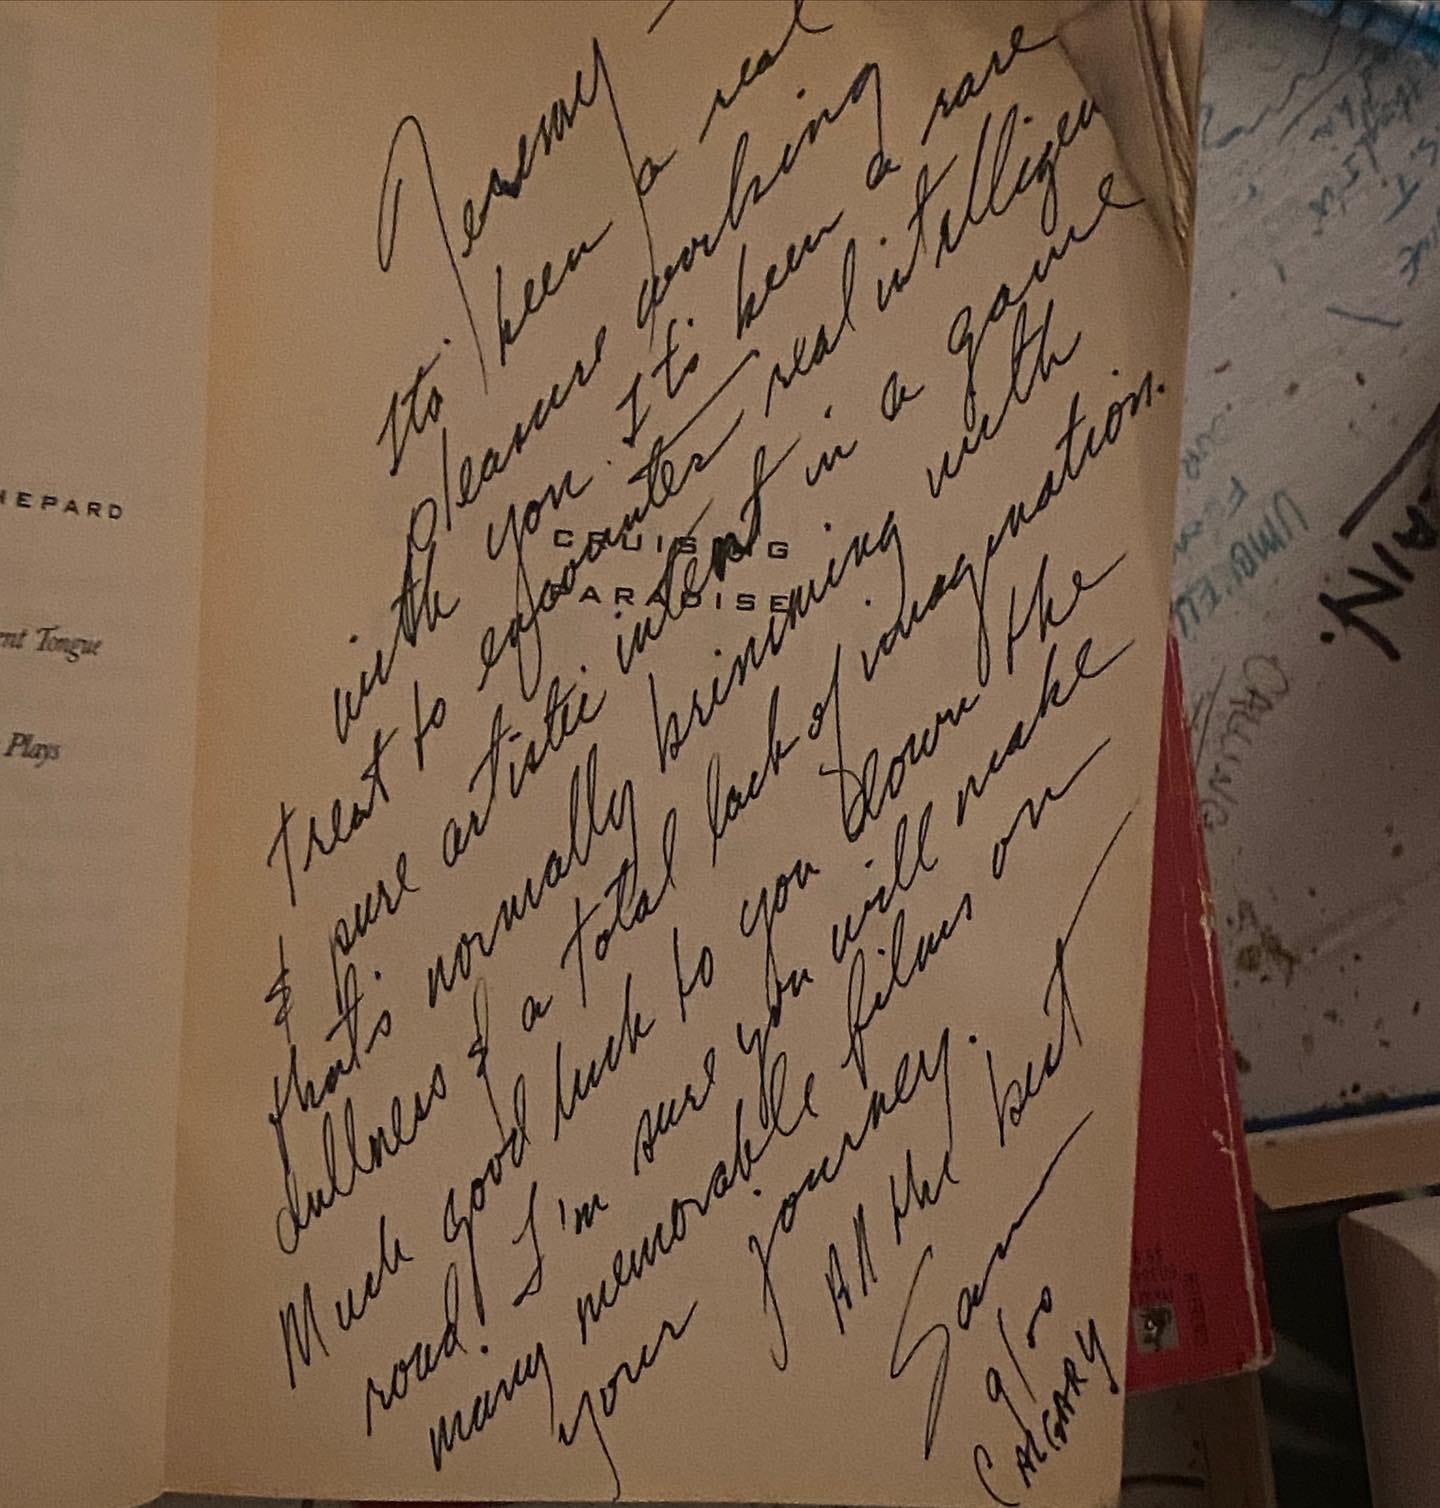 HEPARD
ent Tongue
Plays
CRUISING
PARADISE
Jeremy —
Its been a real
pleasure working
with you. It's been a rare
treat to encounter real intelligen
& pure artistic intent in a game
that's normally brimming with
dullness & a total lack of imagination.
Much good luck to you down the
road. I'm sure you will make
many memorable films on
your journey.
All the best
Sam
9/00
CALGARY
AIN.
CALLING